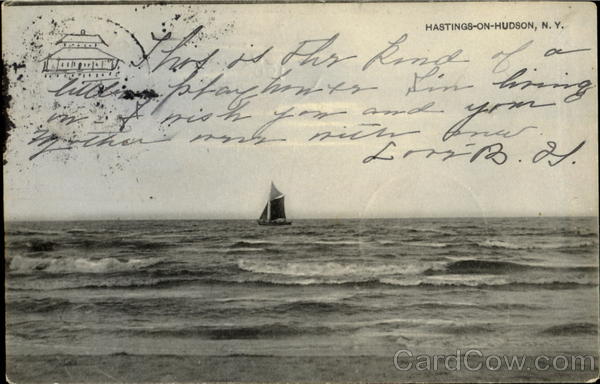 HASTINGS-ON-HUDSON, N. Y.
This is the kind of a
little playhouse I'm living
in I wish you and your
Mother were with me
Love B. H.
CardCow.com